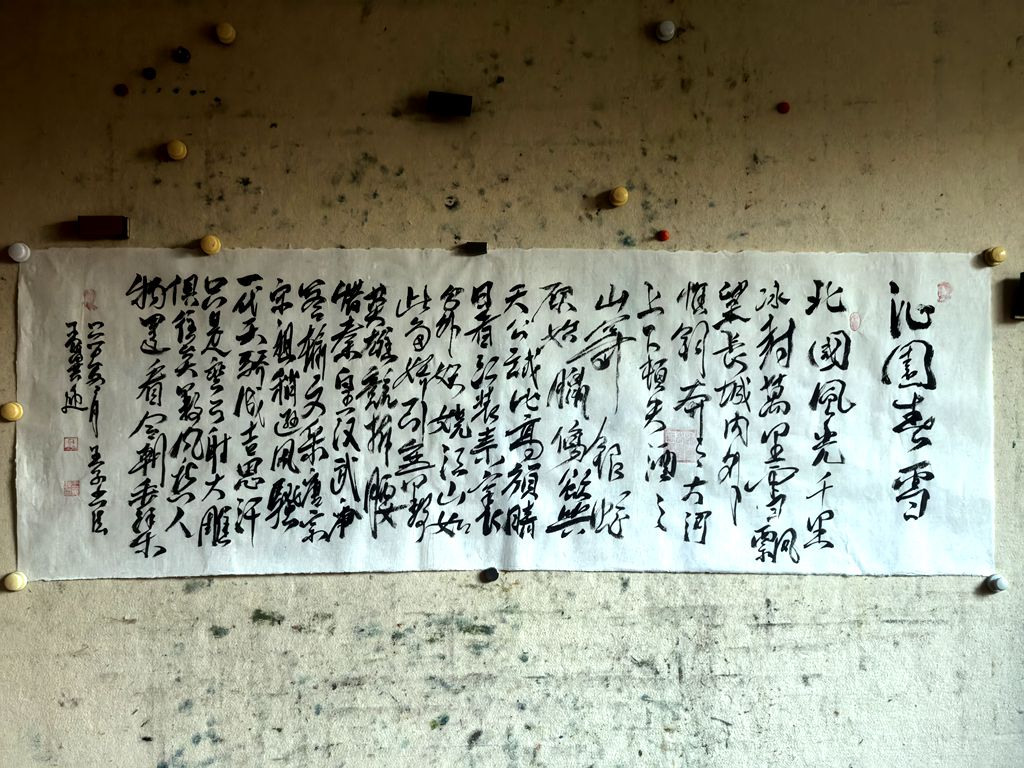 沁園春雪
北國風光千里
冰封萬里雪飄
望長城內外
惟餘莽々大河
上下頓失滔々
山舞銀蛇
原馳臘象欲與
天公試比高須晴
日看紅裝素裹
分外妖嬈江山如
此多嬌引無數
英雄競折腰
惜秦皇汉武
略輸文采唐宗
宋祖稍遜風騷
一代天驕成吉思汗
只識彎弓射大雕
俱往矣數風流人
物還看今朝